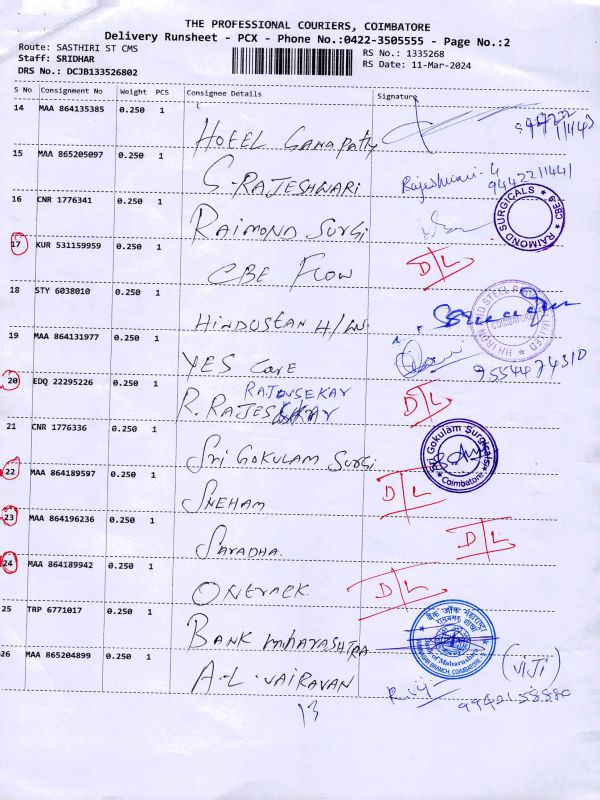 THE PROFESSIONAL COURIERS, COIMBATORE
Delivery Runsheet - PCX - Phone No.:0422-3505555 - Page No.:2
Route: SASTHIRI ST CMS
Staff: SRIDHAR
DRS No.: DCJB133526802
RS No.: 1335268
RS Date: 11-Mar-2024
S No Consignment No Weight PCS Consignee Details Signature
14 MAA 864135385 0.250 1
HOTEL Ganapathy
15 MAA 865205097 0.250 1
S. RAJESHWARI Rajeshwari-G
9442211441
16 CNR 1776341 0.250 1
RAIMOND SURGI
RAIMOND SURGICALS ★ CBE-9 ★
17 KUR 531159959 0.250 1
CBE FLOW D/L
18 STY 6038010 0.250 1
HINDUSTAN H/W.
COIMBATORE
19 MAA 864131977 0.250 1
YES Care
9554474310
20 EDQ 22295226 0.250 1
RAJASEKAR
R. D/L
21 CNR 1776336 0.250 1
SRI GOKULAM SURGI
Sri Gokulam Surgicals ★ Coimbatore ★
22 MAA 864189597 0.250 1
SNEHAM D/L
23 MAA 864196236 0.250 1
SARADHA. D/L
24 MAA 864189942 0.250 1
ONETRACK D/L
25 TRP 6771017 0.250 1
BANK MAHARASHTRA
बैंक ऑफ महाराष्ट्र
Bank of Maharashtra
BRANCH, COIMBATORE
26 MAA 865204899 0.250 1
A-L. VAIRAVAN
(VIJI)
9942158880
13